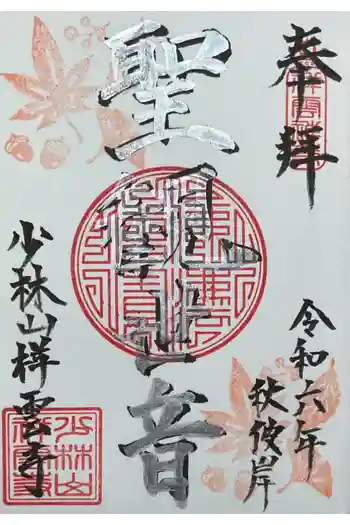 奉拝
聖観世音
令和六年
秋彼岸
少林山祥雲寺